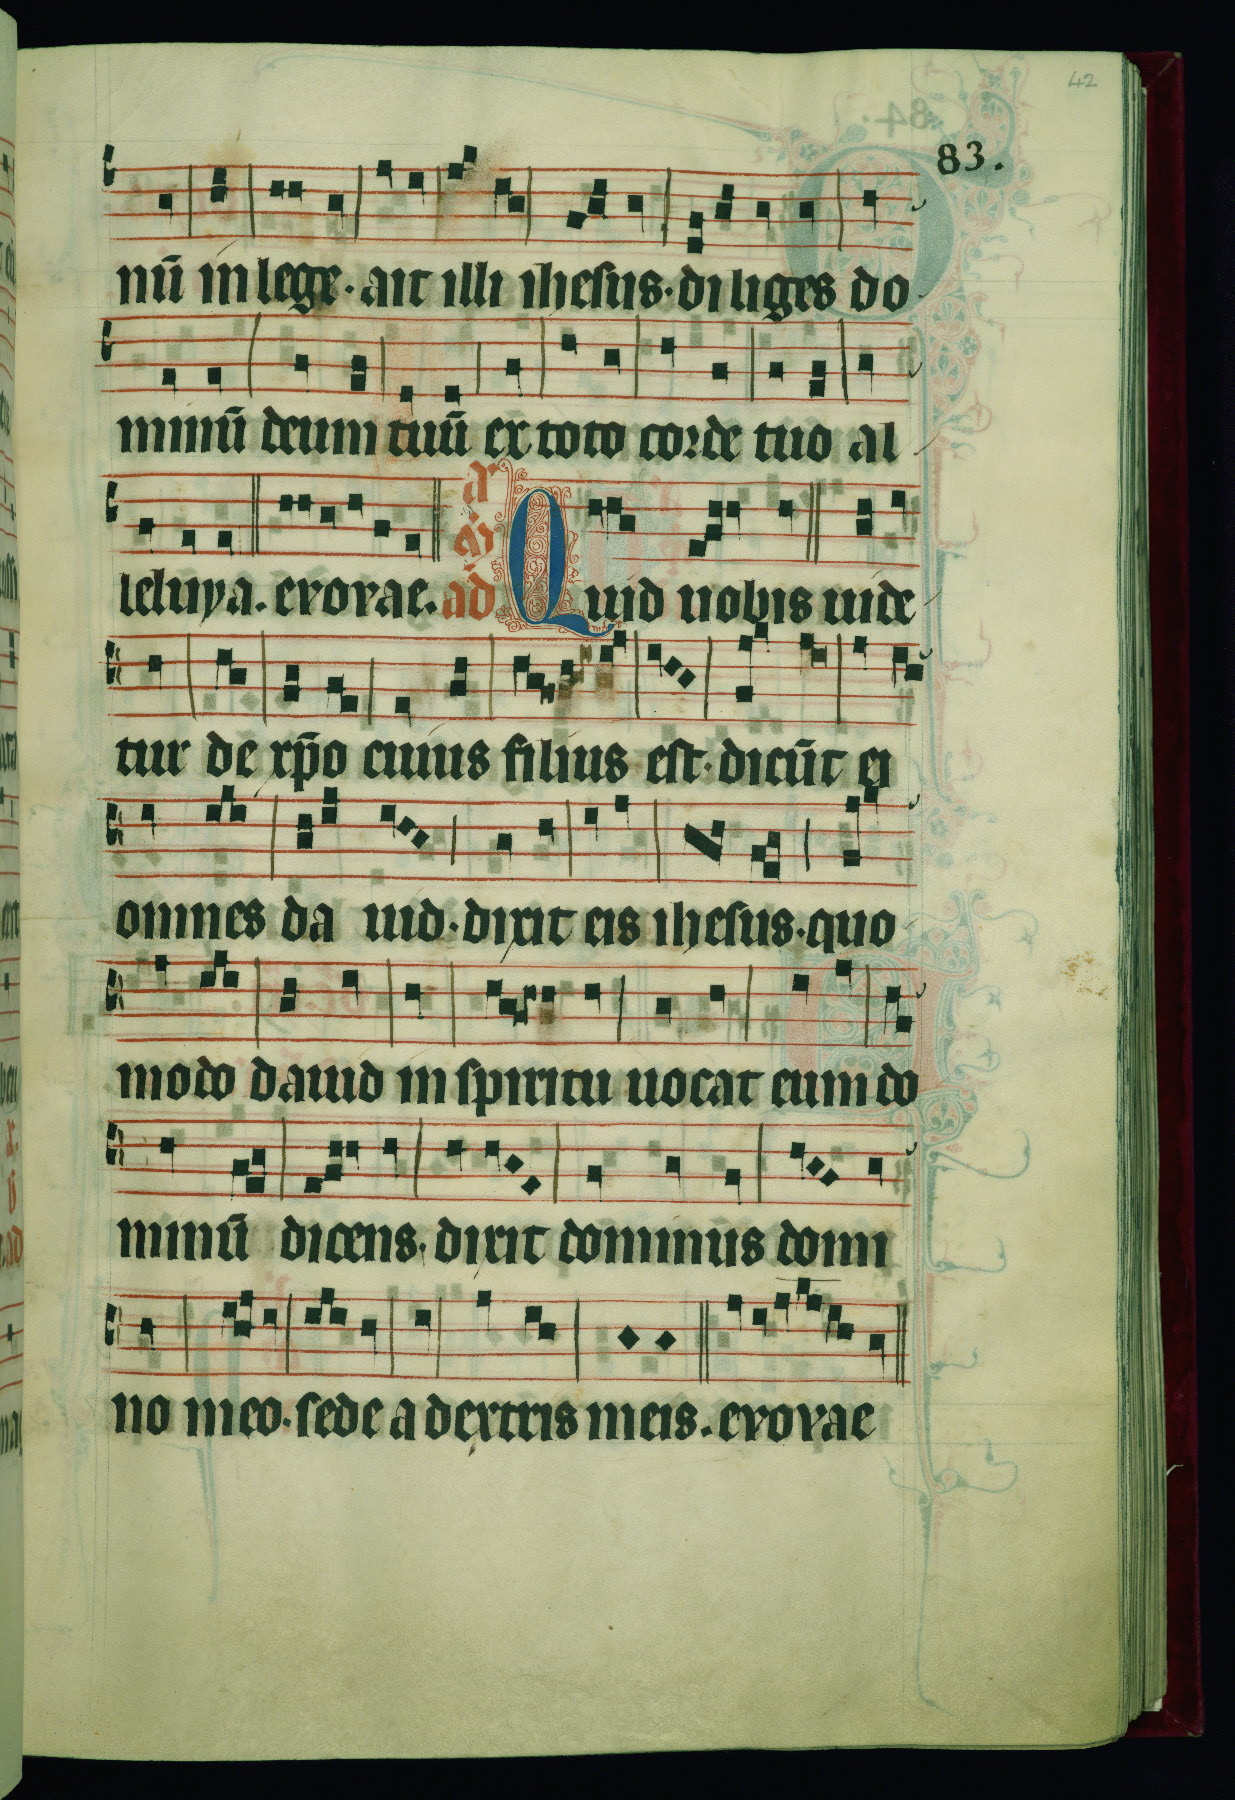 42
83.
nū in lege · ait illi ihesus · diliges do
minū deum tuū ex toto corde tuo al
leluya. evovae. ad Quid uobis uide
tur de xp̄o cuius filius est · dicūt ei
omnes da uid · dixit eis ihesus · quo
modo dauid in spiritu uocat eum do
minū dicens. dixit dominus domi
no meo. sede a dextris meis. evovae